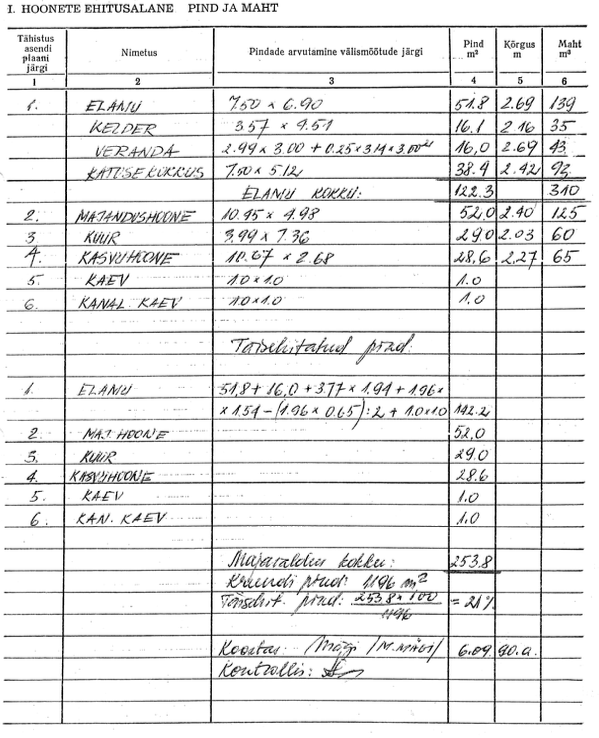 I. HOONETE EHITUSALANE PIND JA MAHT
Tähistus asendi plaani järgi Nimetus Pindade arvutamine välismõõtude järgi Pind m² Kõrgus m Maht m³
1 2 3 4 5 6
1. ELAMU 7.50 × 6.90 51.8 2.69 139
KELDER 3.57 × 4.51 16.1 2.16 35
VERANDA 2.99 × 3.00 + 0.25 × 3.14 × 3.00² 16,0 2.69 43
KATUSEKORRUS 7.50 × 5.12 38.4 2.42 93
ELAMU KOKKU: 122.3 310
2. MAJANDUSHOONE 10.45 × 4.98 52,0 2.40 125
3 KUUR 3.99 × 7.36 29.0 2.03 60
4. KASVUHOONE 10.67 × 2.68 28,6 2,27 65
5. KAEV 1.0 × 1.0 1.0
6. KANAL. KAEV 1.0 × 1.0 1.0
Täisehitatud pind:
1. ELAMU 51,8 + 16,0 + 3.77 × 1.94 + 1.96 ×
× 1.54 – (1.96 × 0.65) : 2 + 1.0 × 1.0 142.2
2. MAJ HOONE 52,0
3. KUUR 29.0
4. KASVUHOONE 28.6
5. KAEV 1.0
6. KAN. KAEV 1.0
Majavaldus kokku: 253.8
Krundi pind: 1196 m²
Täisehit. pind: 253.8 × 100 = 21%
1196
Koostas: Mägi /M. MÄGI/ 6.09. 90.a.
Kontrollis: